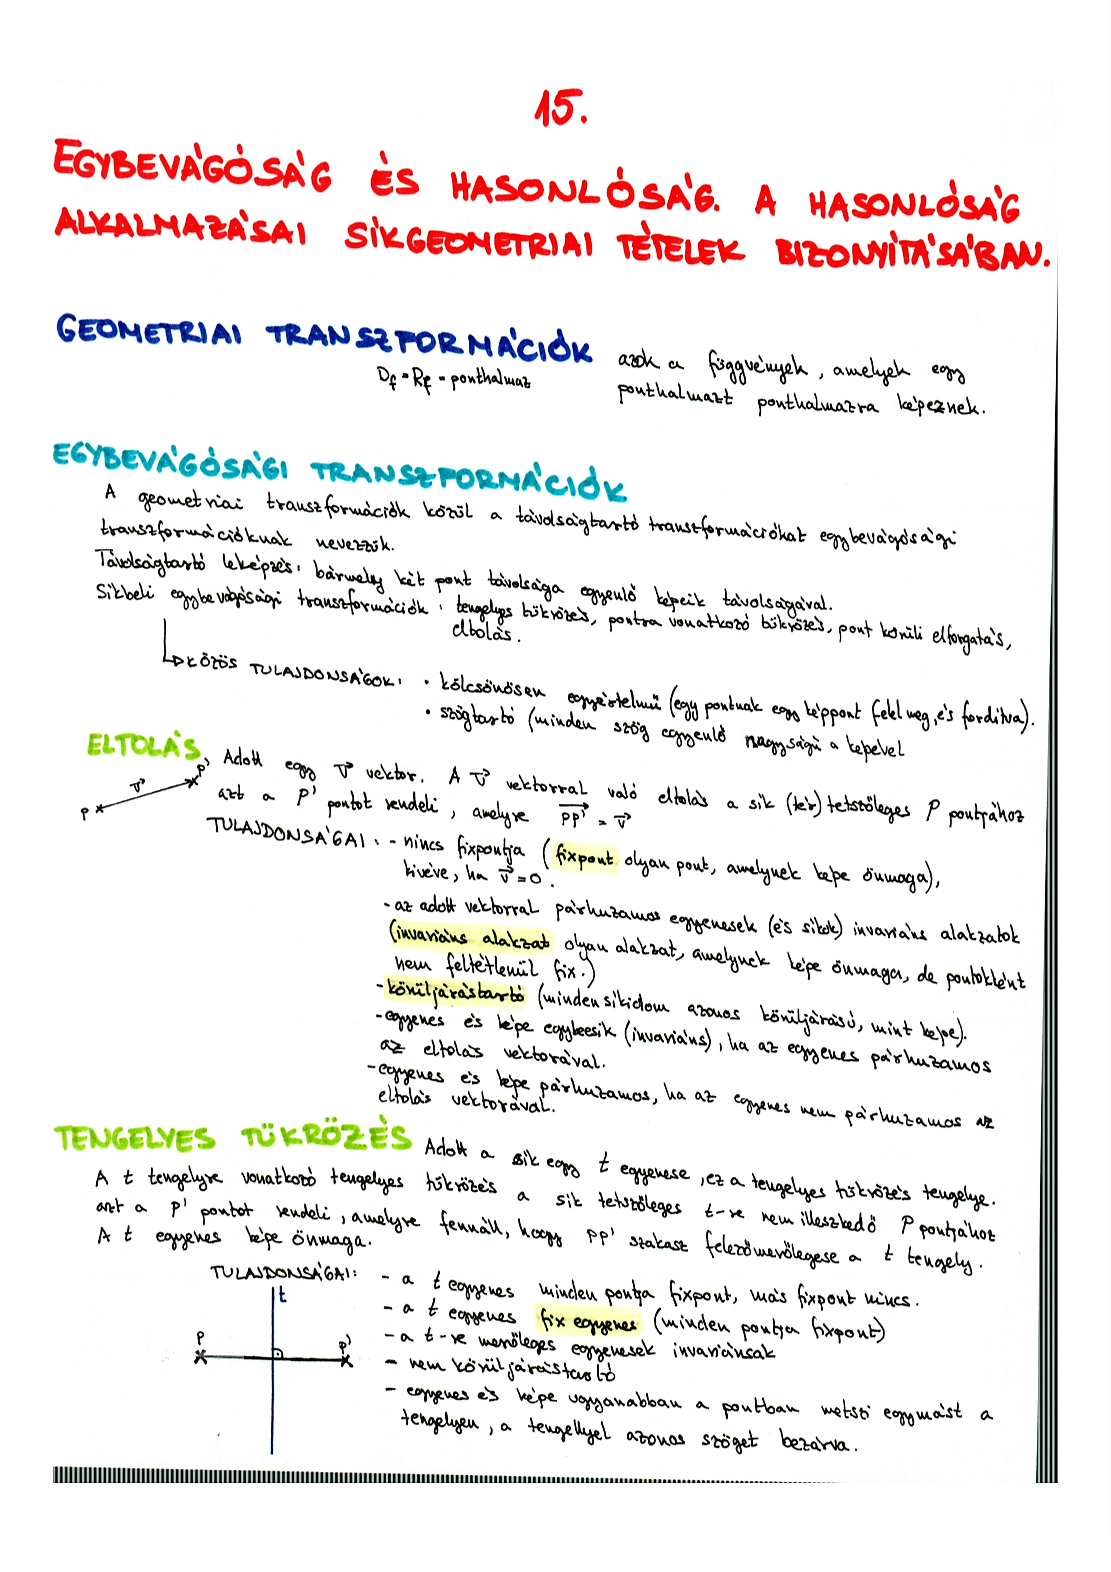 15.
EGYBEVÁGÓSÁG ÉS HASONLÓSÁG. A HASONLÓSÁG
ALKALMAZÁSAI SÍKGEOMETRIAI TÉTELEK BIZONYÍTÁSÁBAN.
GEOMETRIAI TRANSZFORMÁCIÓK azok a függvények, amelyek egy
Df = Rf = ponthalmaz ponthalmazt ponthalmazra képeznek.
EGYBEVÁGÓSÁGI TRANSZFORMÁCIÓK
A geometriai transzformációk közül a távolságtartó transzformációkat egybevágósági
transzformációknak nevezzük.
Távolságtartó leképzés: bármely két pont távolsága egyenlő képeik távolságával.
Síkbeli egybevágósági transzformációk: tengelyes tükrözés, pontra vonatkozó tükrözés, pont körüli elforgatás,
eltolás.
KÖZÖS TULAJDONSÁGOK: • kölcsönösen egyértelmű (egy pontnak egy képpont felel meg, és fordítva).
• szögtartó (minden szög egyenlő nagyságú a képével
ELTOLÁS Adott egy v vektor. A v vektorral való eltolás a sík (tér) tetszőleges P pontjához
P v P'
azt a P' pontot rendeli, amelyre PP' = v
TULAJDONSÁGAI: - nincs fixpontja (fixpont olyan pont, amelynek képe önmaga),
kivéve, ha v = 0.
- az adott vektorral párhuzamos egyenesek (és síkok) invariáns alakzatok
(invariáns alakzat olyan alakzat, amelynek képe önmaga, de pontokként
nem feltétlenül fix.)
- körüljárástartó (minden síkidom azonos körüljárású, mint képe).
- egyenes és képe egybeesik (invariáns), ha az egyenes párhuzamos
az eltolás vektorával.
- egyenes és képe párhuzamos, ha az egyenes nem párhuzamos az
eltolás vektorával.
TENGELYES TÜKRÖZÉS Adott a sík egy t egyenese, ez a tengelyes tükrözés tengelye.
A t tengelyre vonatkozó tengelyes tükrözés a sík tetszőleges t-re nem illeszkedő P pontjához
azt a P' pontot rendeli, amelyre fennáll, hogy PP' szakasz felezőmerőlegese a t tengely.
A t egyenes képe önmaga.
TULAJDONSÁGAI: - a t egyenes minden pontja fixpont, más fixpont nincs.
t
- a t egyenes fix egyenes (minden pontja fixpont)
P P'
- a t-re merőleges egyenesek invariánsak
- nem körüljárástartó
- egyenes és képe ugyanabban a pontban metszi egymást a
tengelyen, a tengellyel azonos szöget bezárva.